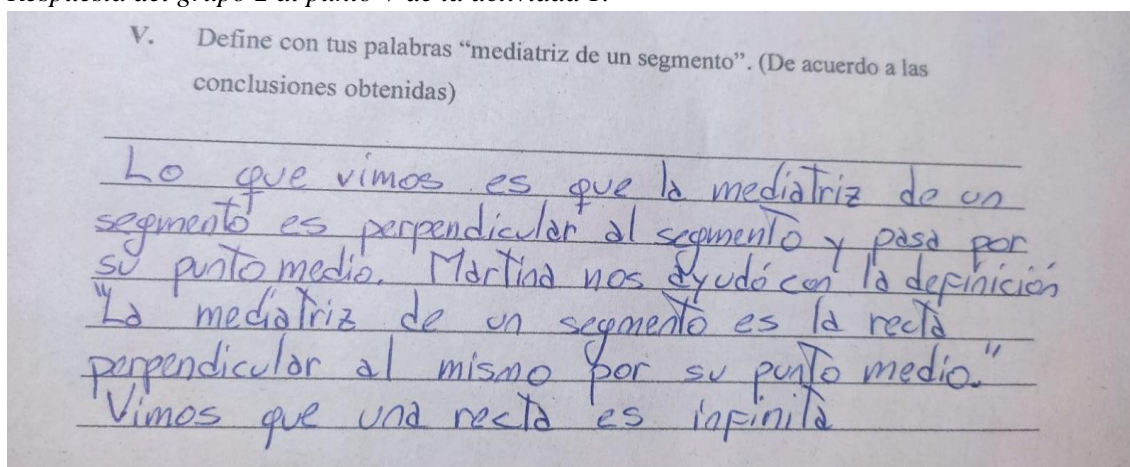 Respuesta del grupo 2 al punto V de la actividad 1.
V. Define con tus palabras “mediatriz de un segmento”. (De acuerdo a las
conclusiones obtenidas)
Lo que vimos es que la mediatriz de un
segmento es perpendicular al segmento y pasa por
su punto medio. Martina nos ayudó con la definición
"La mediatriz de un segmento es la recta
perpendicular al mismo por su punto medio."
Vimos que una recta es infinita